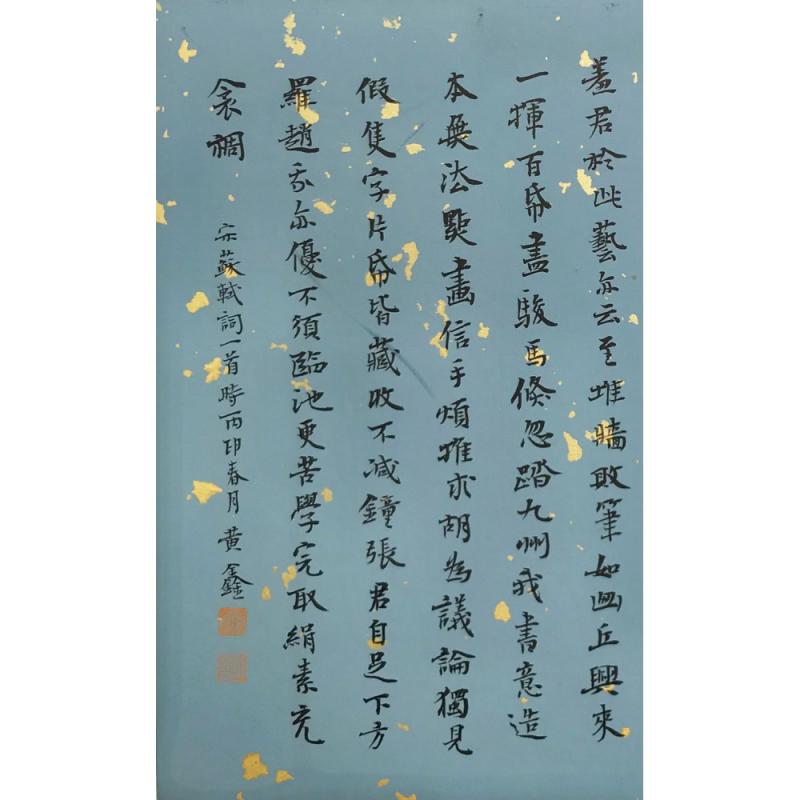 羞君於此藝亦云至堆牆敗筆如幽丘興來
一揮百帋盡駿馬倏忽踏九州我書意造
本無法點畫信手煩推求胡為議論獨見
假隻字片帋皆藏收不減鐘張君自足下方
羅趙我亦優不須臨池更苦學完取絹素充
衾裯
宋蘇軾詞一首時丙卯春月黃鑫